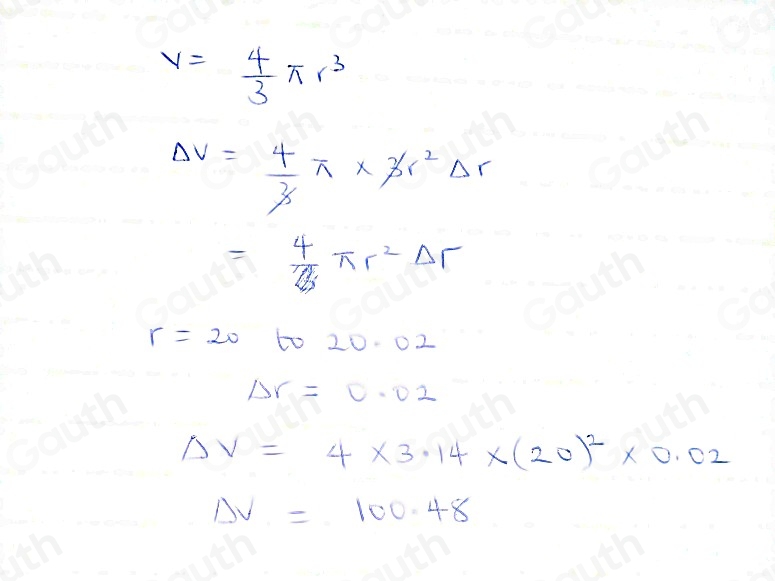 V = 4/3 π r³
ΔV = 4/3 π × 3r² Δr
= 4 πr² Δr
r = 20 to 20.02
Δr = 0.02
ΔV = 4 × 3.14 × (20)² × 0.02
ΔV = 100.48
Gauth